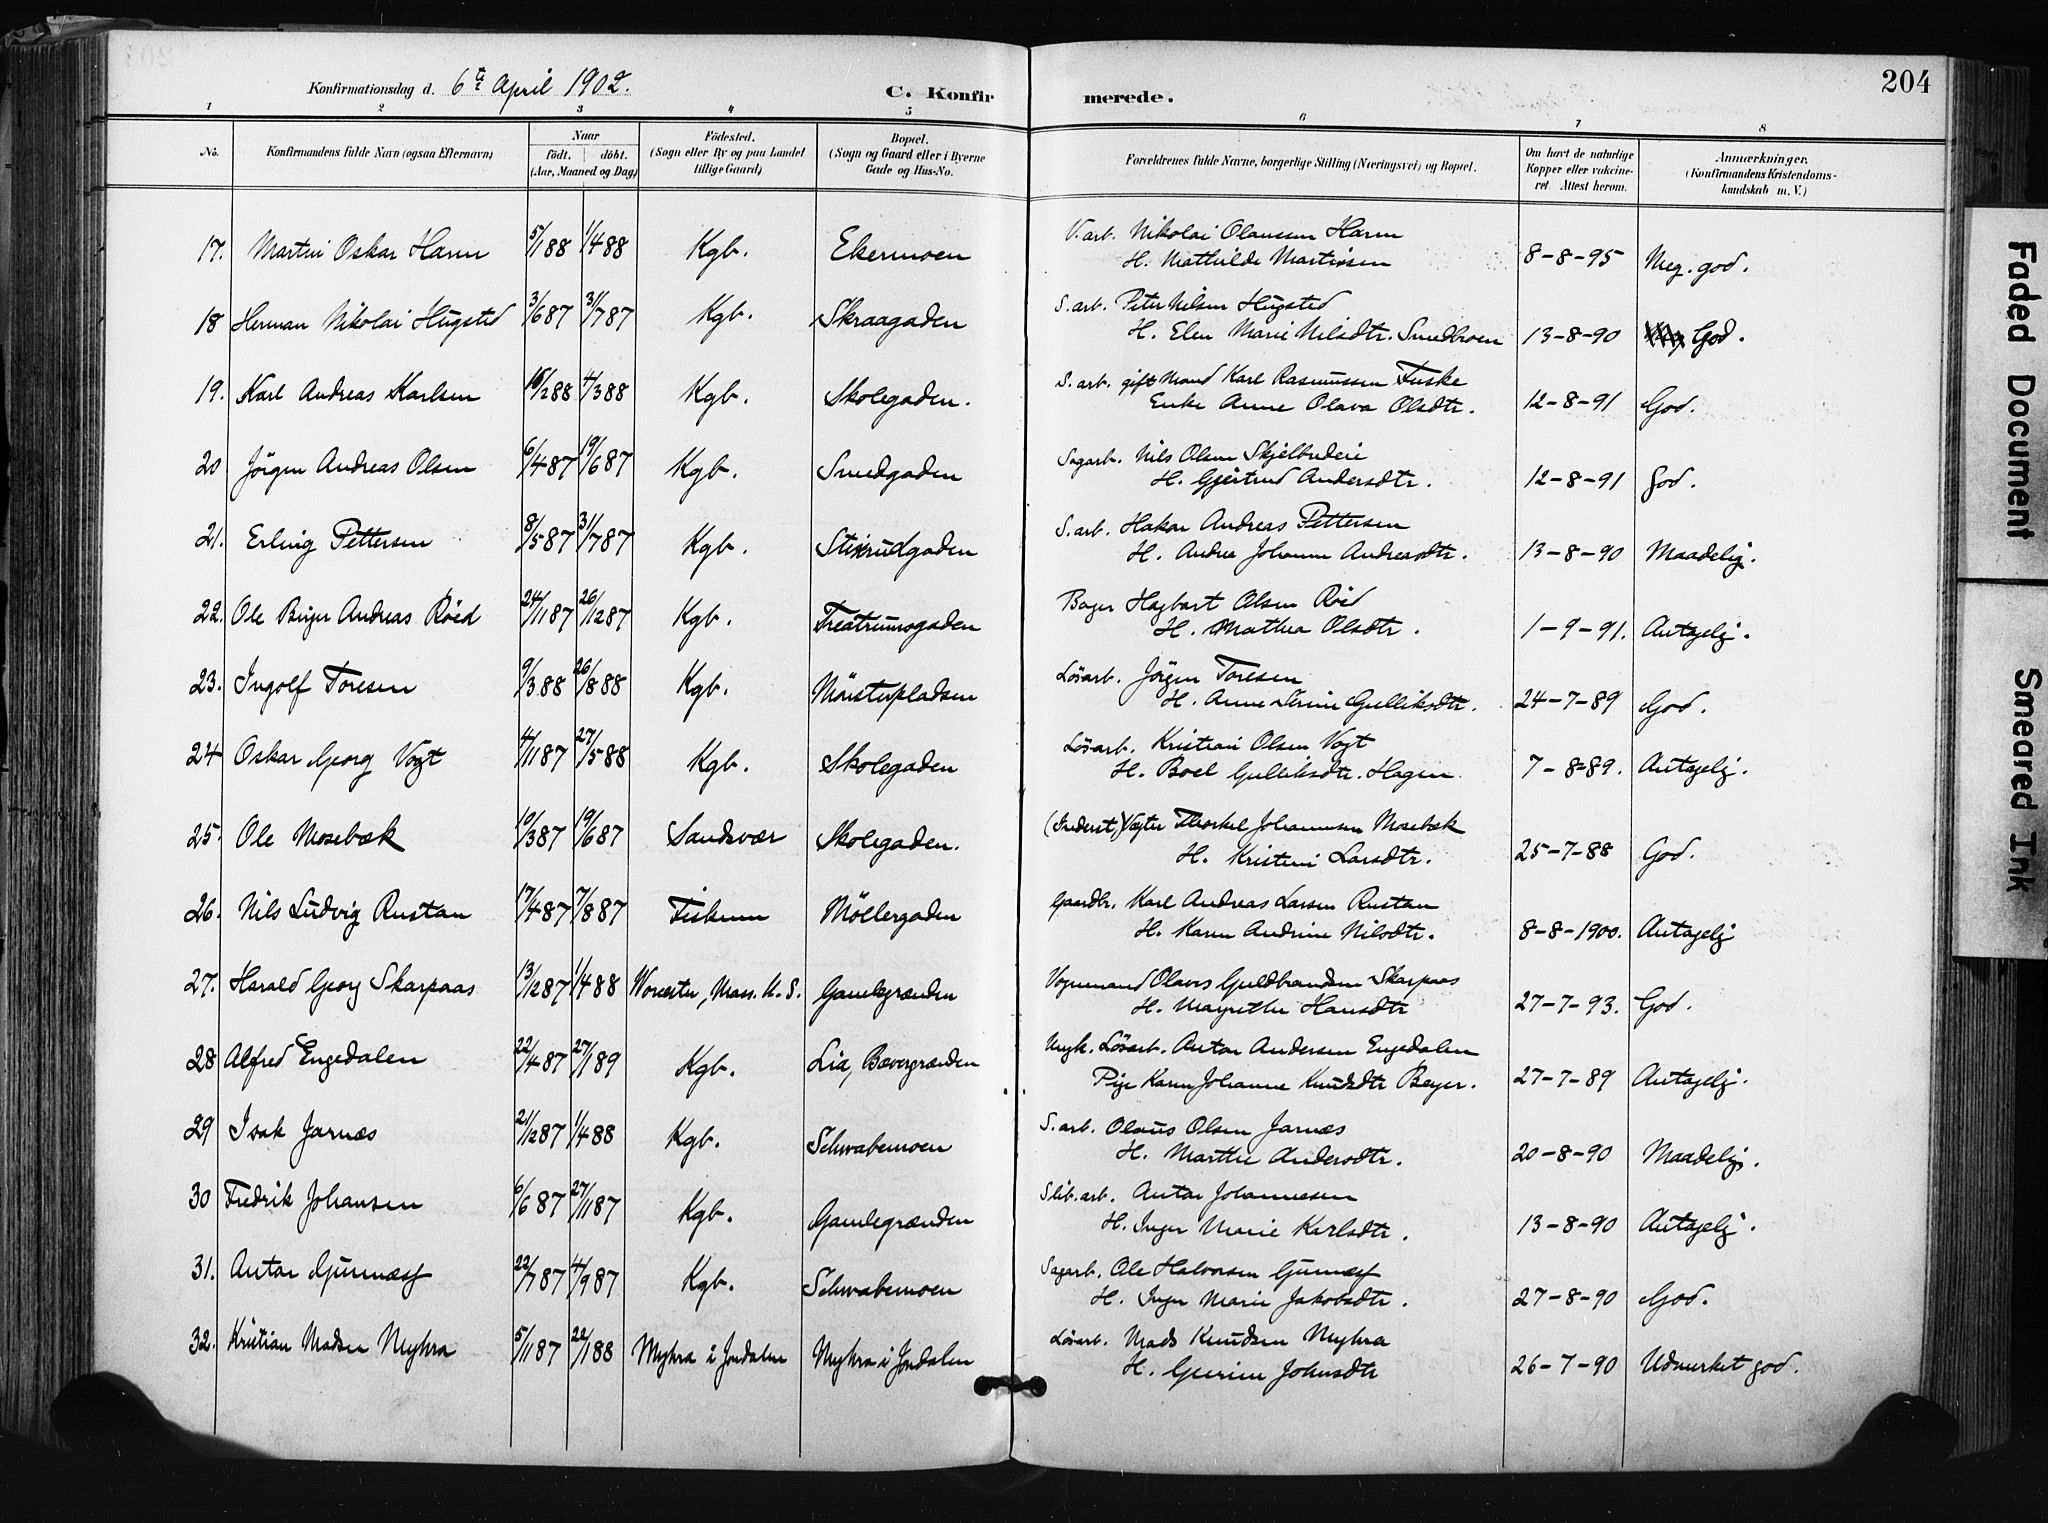 Konfirmationsdag d. 6te April 1902. C. Konfirmerede. 204
1 2 3 4 5 6 7 8
No. Konfirmandens fulde Navn (ogsaa Efternavn) Naar født. døbt. (Aar, Maaned og Dag) Fødested. (Sogn eller By og paa Landet tillige Gaard) Bopæl. (Sogn og Gaard eller i Byerne Gade og Hus-No. Forældrenes fulde Navne, borgerlige Stilling (Næringsvei) og Bopæl. Om havt de naturlige Kopper eller vakcineret. Attest herom. Anmærkninger. (Konfirmandens Kristendomskundskab m. V.)
17. Martin Oskar Havn 5/1 88 1/4 88 Kgb. Ekermoen V. arb. Nikolai Olaussen Havn
H. Mathilde Martinsen 8-8-95 Meg. god.
18 Herman Nikolai Hugsted 3/6 87 31/7 87 Kgb. Skraagaden S. arb. Peter Nilsen Hugsted
H. Elen Marie Nilsdtr. Smedbroen 13-8-90 God.
19. Karl Andreas Karlsen 16/2 88 4/3 88 Kgb. Skolegaden. S. arb. gift Mand Karl Rasmussen Fuske
Enke Anne Olava Olsdtr. 12-8-91 God.
20 Jørgen Andreas Olsen 6/4 87 19/6 87 Kgb. Smedgaden Sagarb. Nils Olsen Skjelbudeie
H. Gjertrud Andersdtr. 12-8-91 God.
21. Erling Pettersen 8/5 87 31/7 87 Kgb. Stixrudgaden S. arb. Hakon Andreas Pettersen
H. Andrea Johanne Andreasdtr. 13-8-90 Maadelig.
22. Ole Birger Andreas Röed 24/11 87 26/12 87 Kgb. Treatrumsgaden Bager Hagbart Olsen Röed
H. Mathea Olsdtr. 1-9-91. Antagelig.
23. Ingolf Toresen 9/3 88 26/8 88 Kgb. Mönsterpladsen Lösarb. Jörgen Toresen
H. Anne Serine Gulliksdtr. 24-7-89 God.
24 Oskar Georg Vogt 4/11 87 27/5 88 Kgb. Skolegaden Lösarb. Kristian Olsen Vogt
H. Boel Gulliksdtr. Hagen 7-8-89. Antagelig.
25. Ole Mosebæk 10/3 87 19/6 87 Sandsvær Skolegaden. (Inderst,) Vægter Thorkel Johannessen Mosebæk
H. Kristine Larsdtr. 25-7-88 God.
26. Nils Ludvig Rustan 17/4 87 7/8 87 Fiskum Möllergaden Gaardbr. Karl Andreas Larsen Rustan
H. Karen Andrine Nilsdtr. 8-8-1900. Antagelig
27. Harald Georg Skarpaas 13/12 87 1/4 88 Worcester, Mass. U. S. Gamlegrænden Vognmand Olaves Guldbrandsen Skarpaas
H. Magrethe Hansdtr 27-7-93. God.
28 Alfred Engedalen 22/4 87 27/1 89 Kgb. Lia, Bævergrænden Ungk. Lösarb. Anton Andersen Engedalen
Pige Karen Johanne Knudsdtr Beyer. 27-7-89 Antagelig.
29 Isak Jarnæs 21/12 87 1/4 88 Kgb. Schwabemoen S. arb. Olaus Olsen Jarnæs
H. Marthe Andersdtr. 20-8-90 Maadelig.
30 Fredrik Johansen 6/6 87 27/11 87 Kgb. Gamlegrænden Slib. arb. Anton Johannesen
H. Inger Marie Karlsdtr. 13-8-90 Antagelig.
31. Anton Gunnæs 22/7 87 4/9 87 Kgb. Schwabemoen Sagarb. Ole Halvorsen Gunnæs
H. Inger Marie Jakobsdtr. 27-8-90 God.
32. Kristian Madsen Myhra 5/11 87 22/1 88 Myhra i Jondalen Myhra i Jondalen Lösarb. Mads Knudsen Myhra
H. Gurine Johnsdtr 26-7-90 Udmerket god.
Faded Document
Smeared Ink